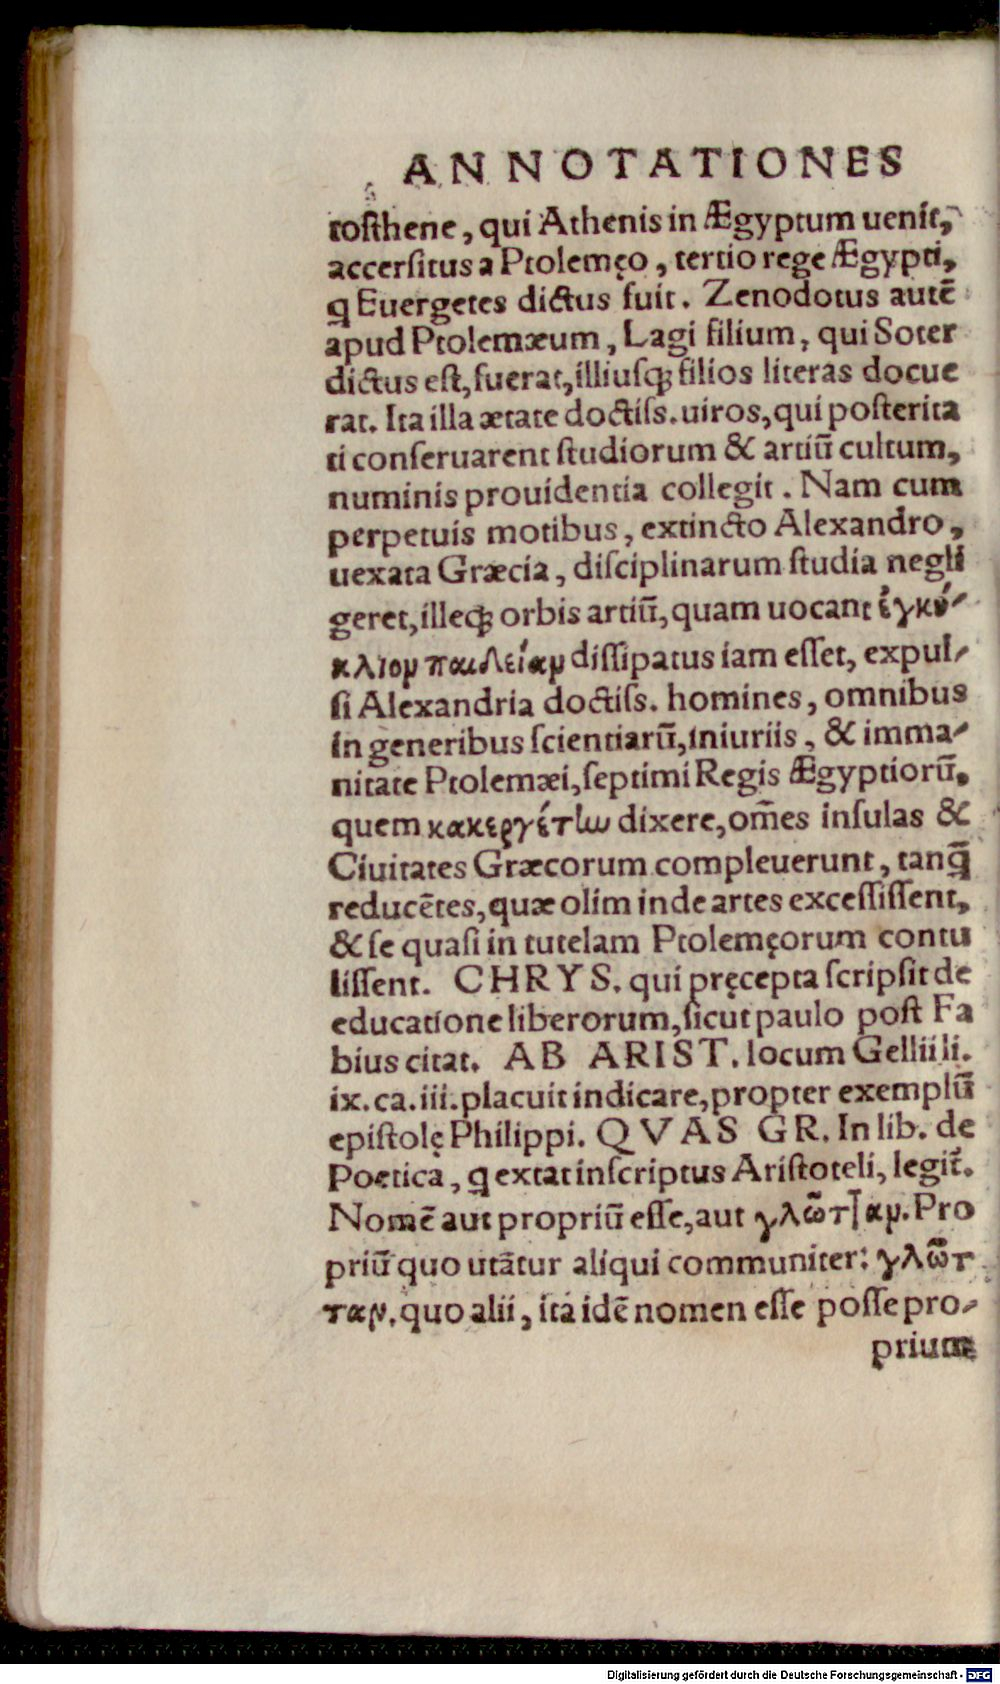 ANNOTATIONES
tosthene, qui Athenis in Ægyptum uenit,
accersitus a Ptolemęo, tertio rege Ægypti,
q Euergetes dictus fuit. Zenodotus autẽ
apud Ptolemæum, Lagi filium, qui Soter
dictus est, fuerat, illiusq; filios literas docue
rat. Ita illa ætate doctiss. uiros, qui posterita
ti conseruarent studiorum & artiũ cultum,
numinis prouidentia collegit. Nam cum
perpetuis motibus, extincto Alexandro,
uexata Græcia, disciplinarum studia negli
geret, illeq; orbis artiũ, quam uocant ἐγκύ-
κλιον παιδείαν dissipatus iam esset, expul-
si Alexandria doctiss. homines, omnibus
in generibus scientiarũ, iniuriis, & imma-
nitate Ptolemæi, septimi Regis Ægyptiorũ,
quem κακεργέτην dixere, om̃es insulas &
Ciuitates Græcorum compleuerunt, tanq̃
reducẽtes, quæ olim inde artes excessissent,
& se quasi in tutelam Ptolemęorum contu
lissent. CHRYS. qui pręcepta scripsit de
educatione liberorum, sicut paulo post Fa
bius citat. AB ARIST. locum Gellii li.
ix. ca. iii. placuit indicare, propter exemplũ
epistolę Philippi. QVAS GR. In lib. de
Poetica, q extat inscriptus Aristoteli, legit̃.
Nomẽ aut propriũ esse, aut γλῶτταν. Pro
priũ quo utãtur aliqui communiter: γλῶτ
ταν, quo alii, ita idẽ nomen esse posse pro-
prium
Digitalisierung gefördert durch die Deutsche Forschungsgemeinschaft - DFG